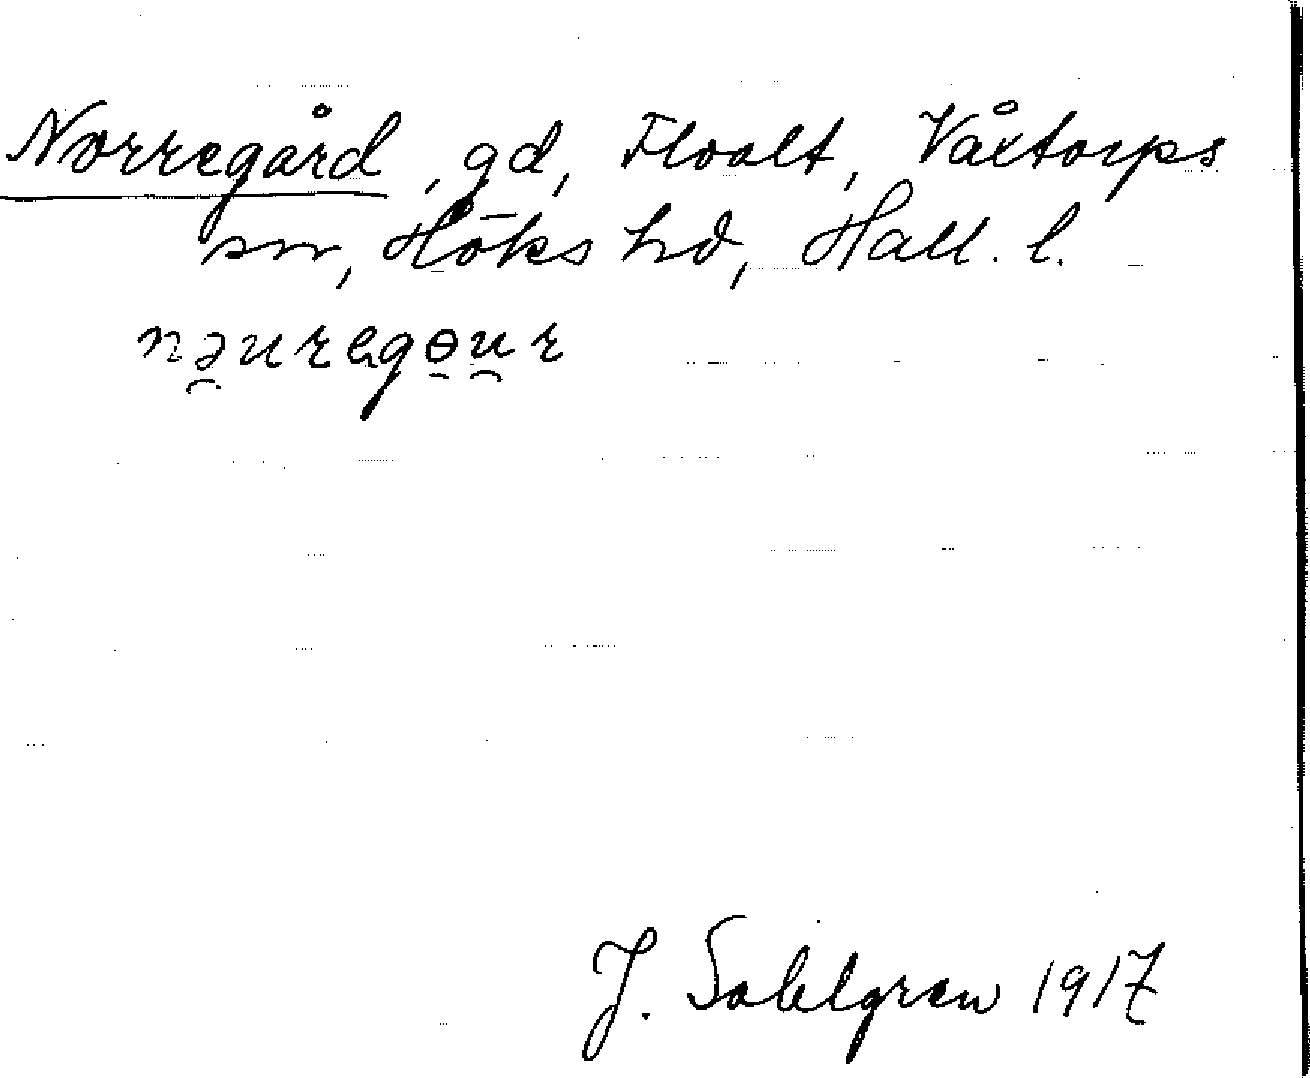 Norregård, gd, Floalt, Våxtorps
sn, Höks hd, Hall. l.
nəuregɵur
J. Sahlgren 1917